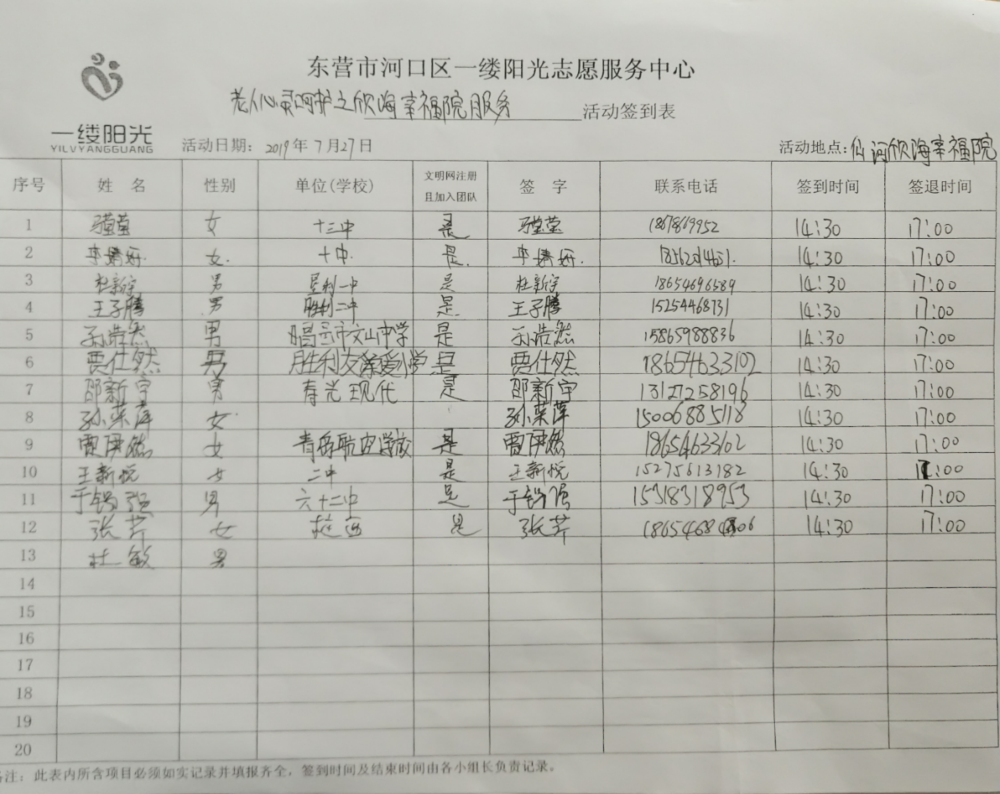 东营市河口区一缕阳光志愿服务中心
老人心灵呵护之欣海幸福院服务 活动签到表
一缕阳光
YILVYANGGUANG
活动日期: 2019年7月27日 活动地点:仙河欣海幸福院
序号 姓名 性别 单位(学校) 文明网注册且加入团队 签字 联系电话 签到时间 签退时间
1 女 十三中 是 14:30 17:00
2 李婧妍 女. 十中. 是. 李婧妍. 14:30 17:00
3 杜新宇 男 胜利一中 是 杜新宇 18654696589 14:30 17:00
4 王子腾 男 胜利二中 是. 王子腾 15254468731 14:30 17:00
5 孙浩然 男 昌邑市文山中学 是 孙浩然 15865988836 14:30 17:00
6 贾仕然 男 是 贾仕然 18654633102 14:30 17:00
7 邵新宇 男 寿光现代 是 邵新宇 13127258196 14:30 17:00
8 孙荣萍 女 孙荣萍 15006885118 14:30 17:00
9 贾伊然 女 青岛航空学校 是 贾伊然 18654633102 14:30 17:00
10 王新悦 女 二中 是 王新悦 15275613182 14:30 :00
11 于锡强 男 六十二中 是 于锡强 15318318953 14:30 17:00
12 张芹 女 是 张芹 14:30 17:00
13 杜敏 男
14
15
16
17
18
19
20
备注:此表内所含项目必须如实记录并填报齐全,签到时间及结束时间由各小组长负责记录。